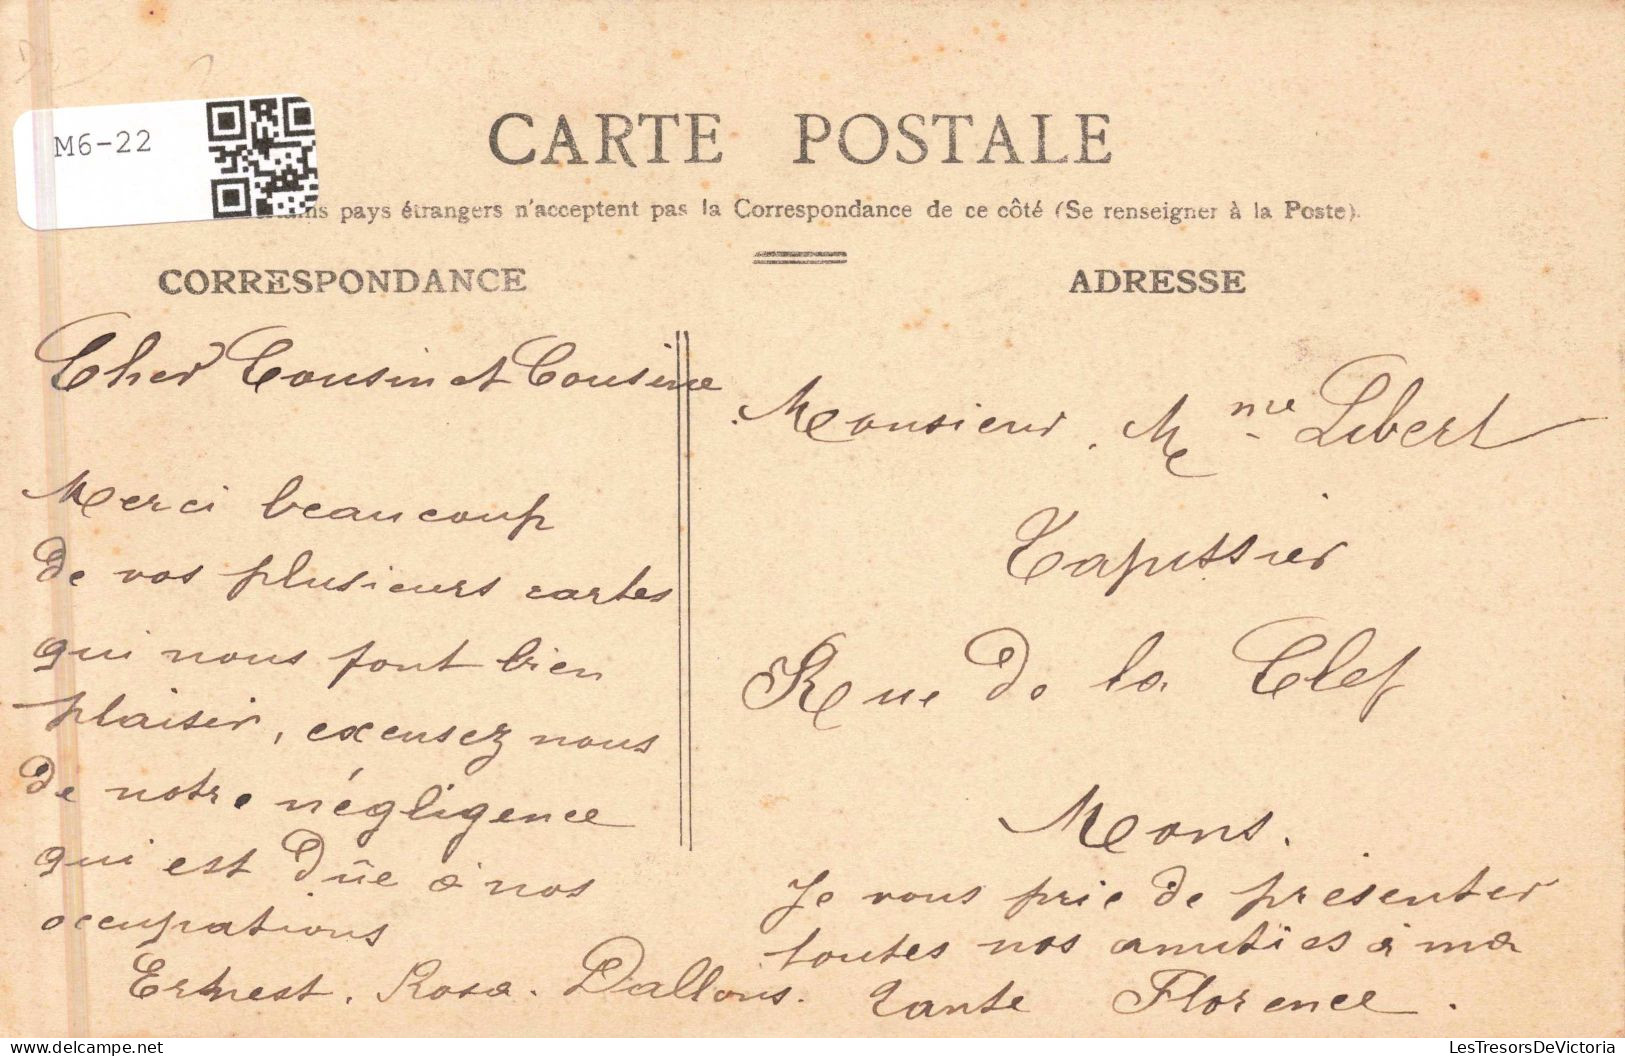 M6-22
CARTE POSTALE
pays étrangers n'acceptent pas la Correspondance de ce côté (Se renseigner à la Poste).
CORRESPONDANCE
Cher Cousin et Cousine
Merci beaucoup
de vos plusieurs cartes
qui nous font bien
plaisir, excusez nous
de notre négligence
qui est dûe à nos
occupations
Ernest. Rosa. Dallons.
ADRESSE
Monsieur. Mme Libert
Tapissier
Rue de la Clef
Mons.
Je vous prie de présenter
toutes nos amitiés à ma
tante Florence.
LesTresorsDeVictoria